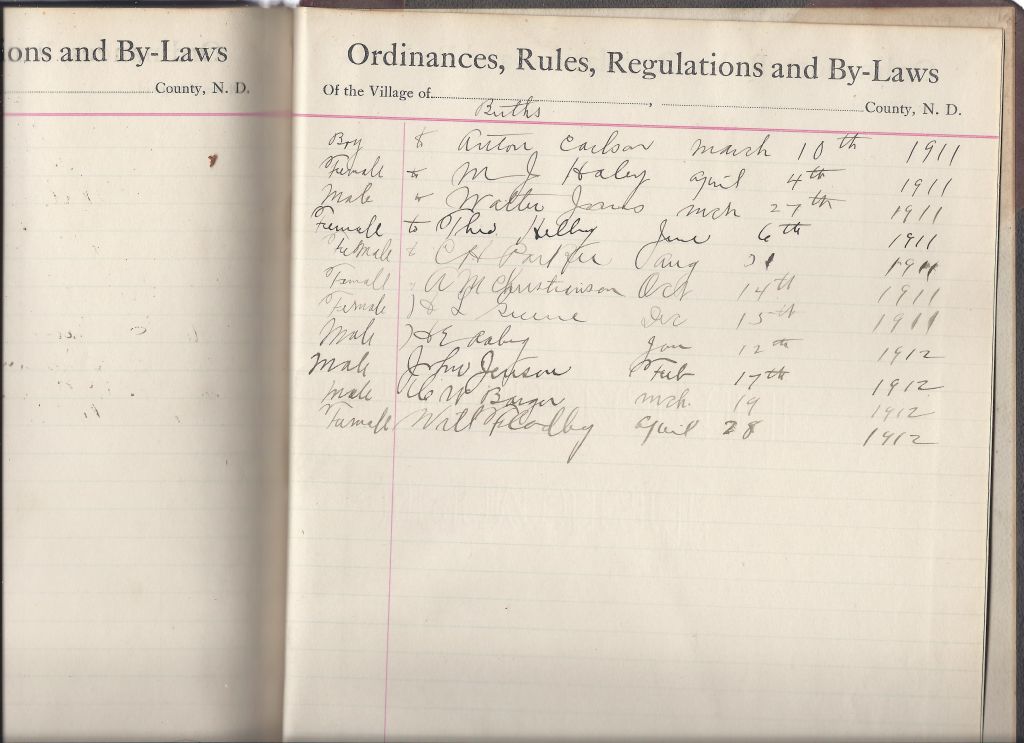 ons and By-Laws
County, N. D.
Ordinances, Rules, Regulations and By-Laws
Of the Village of , County, N. D.
Births
Boy & Anton Carlson March 10th 1911
Female to M J Haley April 4th 1911
Male to Walter Jones Mch 27th 1911
Female to Theo Helby June 6th 1911
Female C H Parker Aug 31 1911
Female A M Christianson Oct 14th 1911
Female H L Greene Dec 15th 1911
Male H E Jan 12th 1912
Male John Jenson Feb 17th 1912
Male Barger Mch 19 1912
Female Will April 28 1912